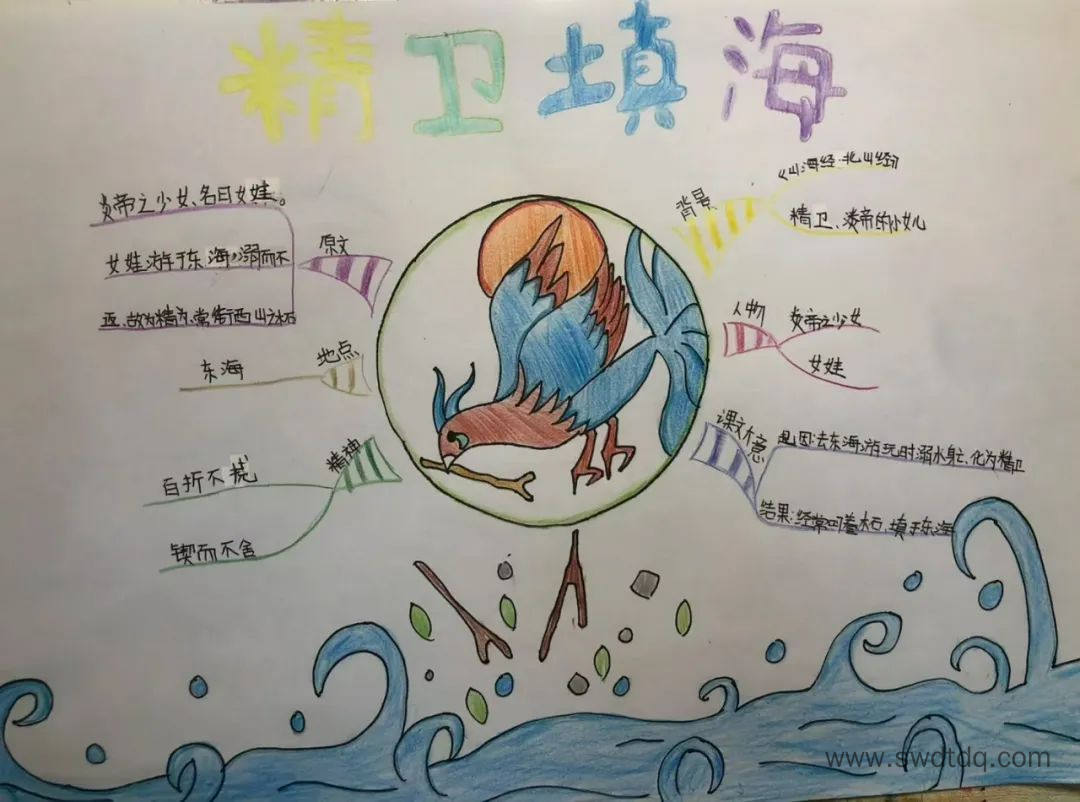 精卫填海
炎帝之少女、名曰女娃。
原文
女娃游于东海,溺而不
返、故为精卫、常衔西山之木石
地点
东海
精神
百折不挠
锲而不舍
背景
《山海经·北山经》
精卫、炎帝的小女儿
人物
炎帝之少女
女娃
课文大意
起因:去东海游玩时溺水身亡、化为精卫
结果:经常叼着木石、填于东海
www.swdtdq.com